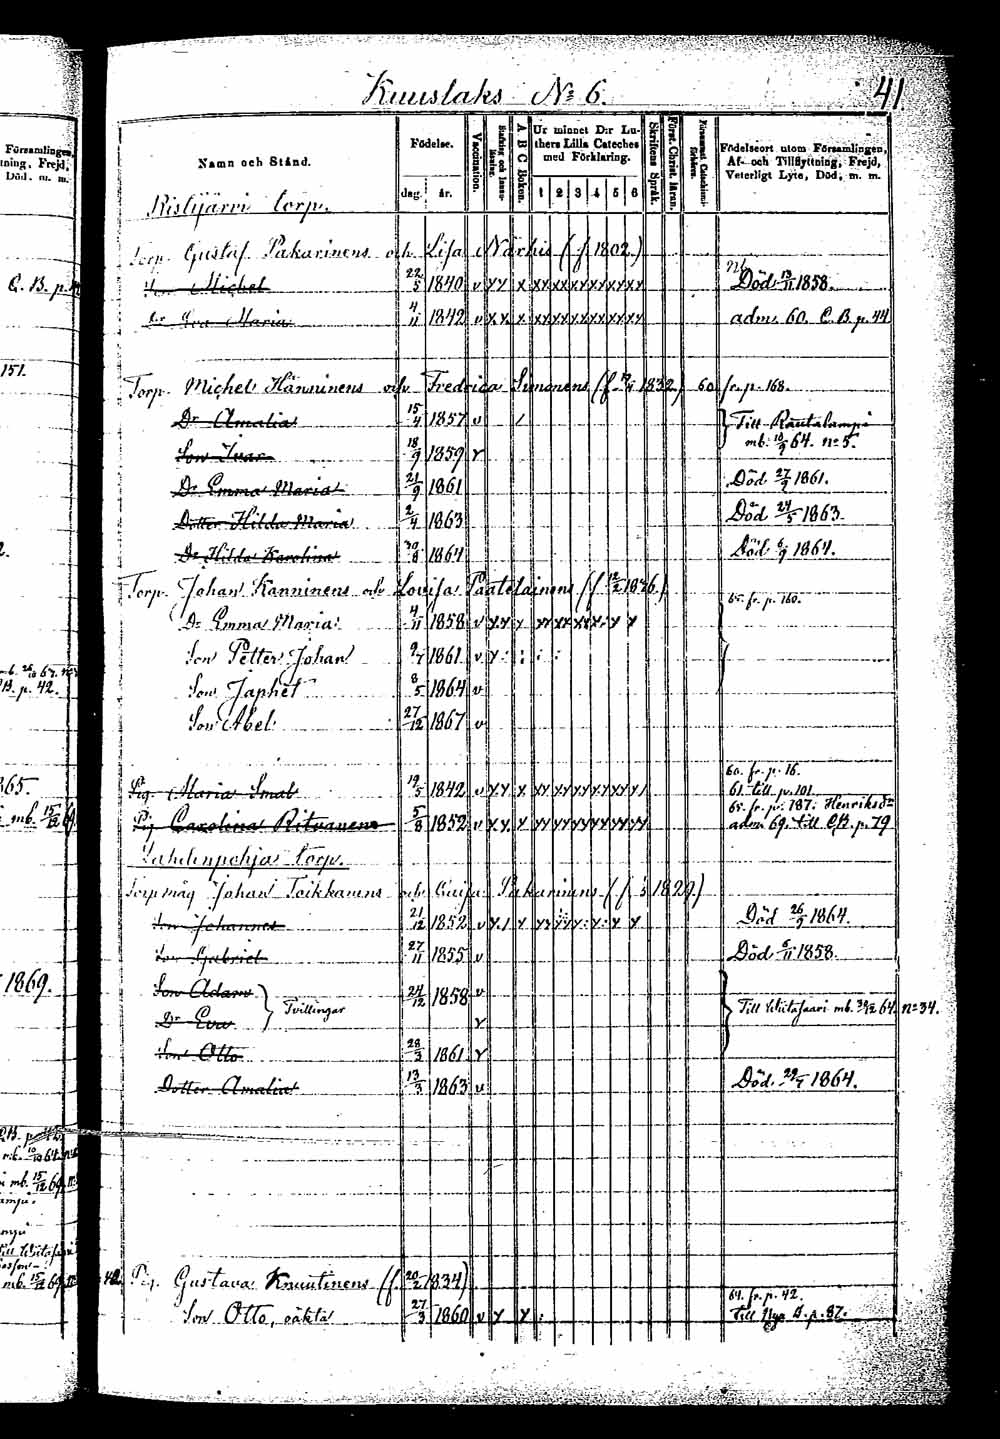 Kuuslaks No 6.
41
Namn och Stånd.
Födelse.
dag. år.
Vaccination.
A B C Boken.
Ur minnet D:r Luthers Lilla Cateches med Förklaring.
1 2 3 4 5 6
Skriftens Språk.
Födelseort utom Församlingen, Af- och Tillflyttning, Frejd, Veterligt Lyte, Död, m. m.
Ristijärvi torp.
Torp. Gustaf Pakarinens och Lisa Närhis (f 1802.)
Son Michel 22/5 1840 v Död 13/11 1858.
Dr Eva Maria 4/11 1842 v adm. 60. C. B. p. 44
Torp. Michel Hänninens och Fredrica Simonens (f. 1832) 60. fr. p. 168.
Dr Amalia 15/4 1857 v Till Rautalampi
Son Ivar 18/9 1859 v mb. 10/9 64. no 5.
Dr Emma Maria 21/9 1861 Död 27/9 1861.
Dotter Hilda Maria 2/4 1863 Död 24/5 1863.
Dr Hilda Karolina 30/8 1864 Död 6/9 1864.
Torp. Johan Kanninens och Lovisa Paatelainens (f. 12/2 1836.)
65. fr. p. 160.
Dr Emma Maria 4/11 1858 v
Son Petter Johan 9/7 1861 v
Son Japhet 8/5 1864 v
Son Abel 27/12 1867 v
60. fr. p. 16.
Pig. Maria Smal 19/5 1842 v 61. till p. 101.
65. fr. p. 187. Henriks dr
Pig Carolina Rituanen 5/8 1852 v adm. 69. till CB. p. 79
Lahdenpohja torp.
Torpmåg Johan Toikkanens och Caisa Pakarinens (f. 1829)
Son Johannes 21/12 1852 v Död 26/9 1864.
Son Gabriel 27/11 1855 v Död 6/11 1858.
Son Adam 24/12 1858 v
Tvillingar
Till Wiitasaari mb. 30/12 64. no 34.
Dr Eva v
Son Otto 28/3 1861 v
Dotter Amalia 13/3 1863 v Död 29/1 1864.
Pig. Gustava Knuutinens (f. 20/2 1834)
64. fr. p. 42.
Son Otto, oäkta 27/3 1860 v Till Nya B. p. 87.
Församlingen,
Död. m. m.
151.
1869.